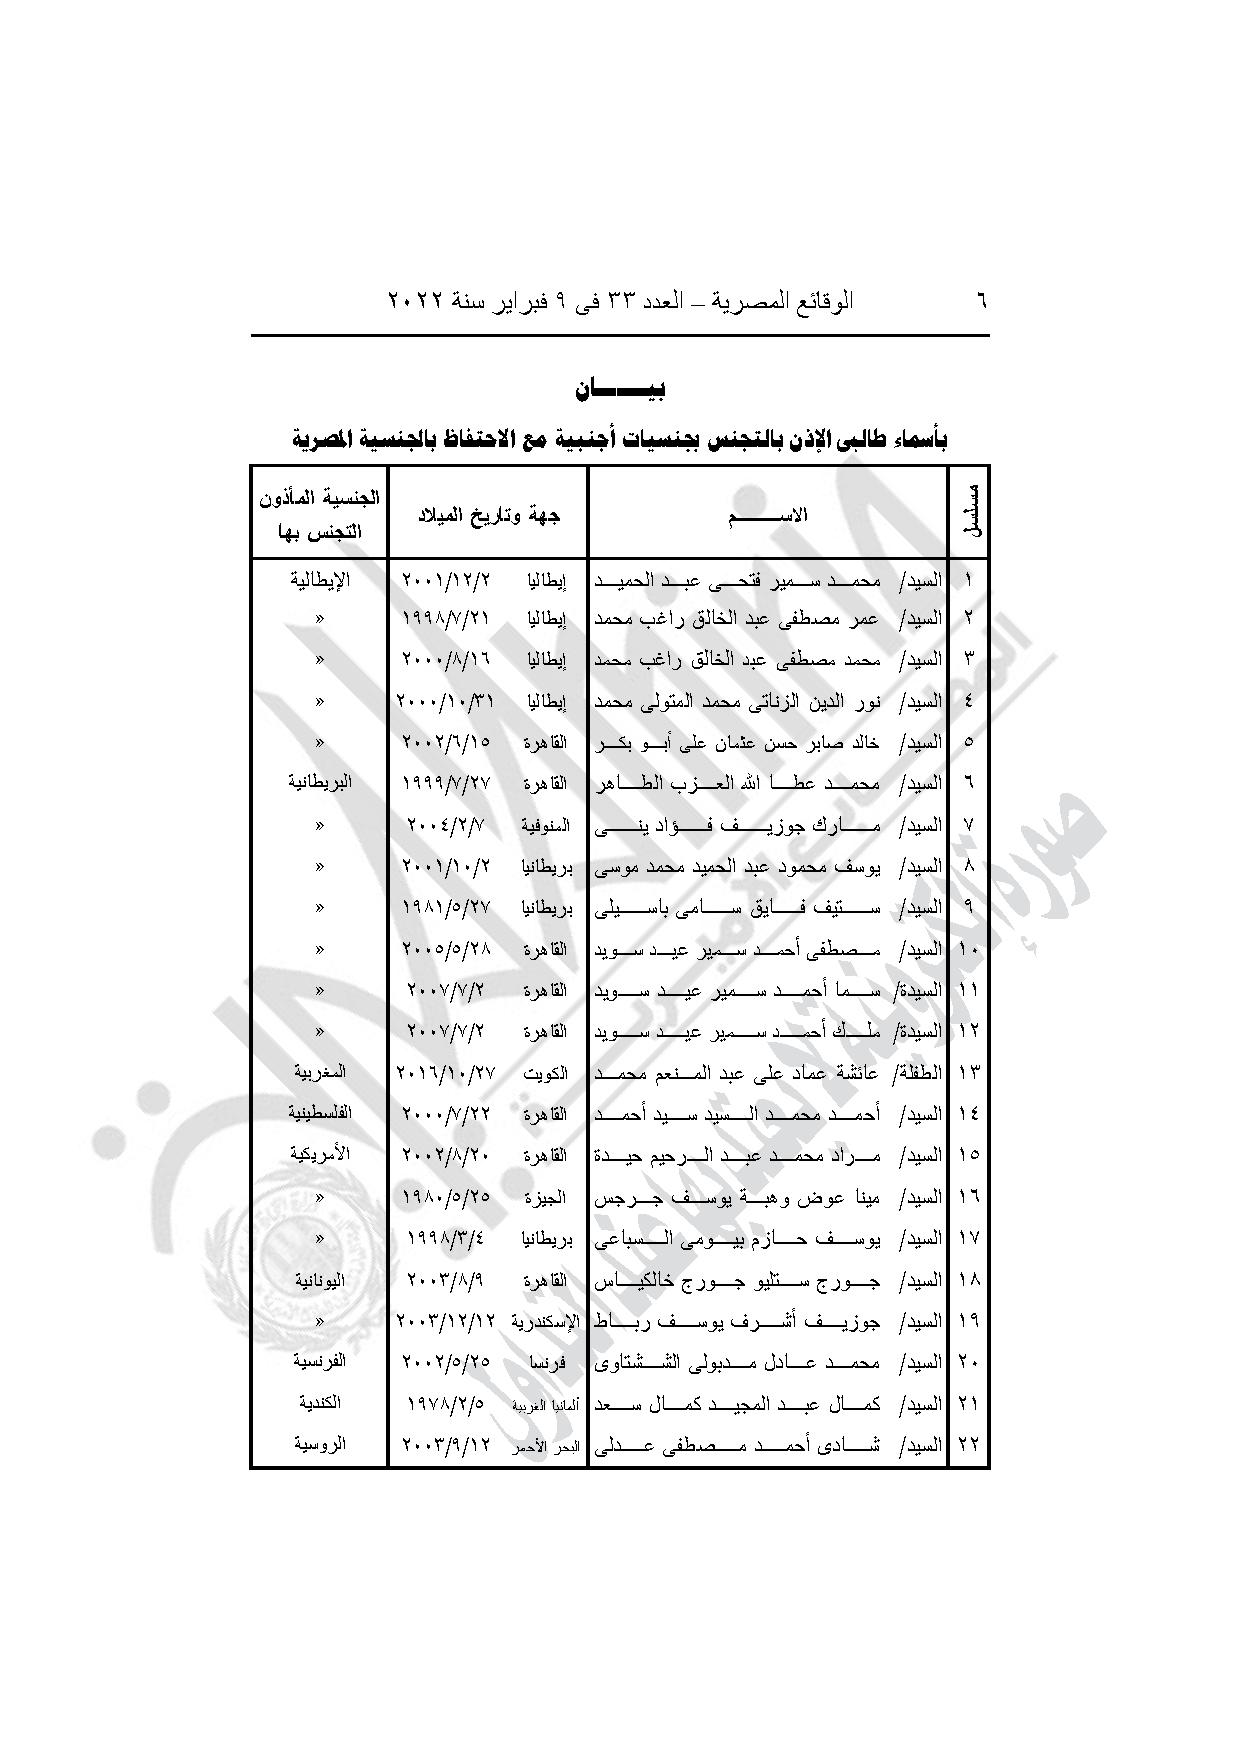 ٦ الوقائع المصرية – العدد ٣٣ فى ٩ فبراير سنة ٢٠٢٢
بيـــــان
بأسماء طالبى الإذن بالتجنس بجنسيات أجنبية مع الاحتفاظ بالجنسية المصرية
مسلسل الاســـــم جهة وتاريخ الميلاد الجنسية المأذون التجنس بها
١ السيد/ محمـد سـمير فتحـى عبـد الحميـد إيطاليا ٢٠٠١/١٢/٢ الإيطالية
٢ السيد/ عمر مصطفى عبد الخالق راغب محمد إيطاليا ١٩٩٨/٧/٢١ »
٣ السيد/ محمد مصطفى عبد الخالق راغب محمد إيطاليا ٢٠٠٠/٨/١٦ »
٤ السيد/ نور الدين الزناتى محمد المتولى محمد إيطاليا ٢٠٠٠/١٠/٣١ »
٥ السيد/ خالد صابر حسن عثمان على أبـو بكـر القاهرة ٢٠٠٢/٦/١٥ »
٦ السيد/ محمـد عطـا الله العـزب الطـاهر القاهرة ١٩٩٩/٧/٢٧ البريطانية
٧ السيد/ مـارك جوزيـف فـؤاد ينـى المنوفية ٢٠٠٤/٢/٧ »
٨ السيد/ يوسف محمود عبد الحميد محمد موسى بريطانيا ٢٠٠١/١٠/٢ »
٩ السيد/ سـتيف فـايق سـامى باسـيلى بريطانيا ١٩٨١/٥/٢٧ »
١٠ السيد/ مـصطفى أحمـد سـمير عيـد سـويد القاهرة ٢٠٠٥/٥/٢٨ »
١١ السيدة/ سـما أحمـد سـمير عيـد سـويد القاهرة ٢٠٠٧/٧/٢ »
١٢ السيدة/ ملـك أحمـد سـمير عيـد سـويد القاهرة ٢٠٠٧/٧/٢ »
١٣ الطفلة/ عائشة عماد على عبد المـنعم محمـد الكويت ٢٠١٦/١٠/٢٧ المغربية
١٤ السيد/ أحمـد محمـد الـسيد سـيد أحمـد القاهرة ٢٠٠٠/٧/٢٢ الفلسطينية
١٥ السيد/ مـراد محمـد عبـد الـرحيم حيـدة القاهرة ٢٠٠٢/٨/٢٠ الأمريكية
١٦ السيد/ مينا عوض وهبـة يوسـف جـرجس الجيزة ١٩٨٠/٥/٢٥ »
١٧ السيد/ يوسـف حـازم بيـومى الـسباعى بريطانيا ١٩٩٨/٣/٤ »
١٨ السيد/ جـورج سـتليو جـورج خالكيـاس القاهرة ٢٠٠٣/٨/٩ اليونانية
١٩ السيد/ جوزيـف أشـرف يوسـف ربـاط الإسكندرية ٢٠٠٣/١٢/١٢ »
٢٠ السيد/ محمـد عـادل مـدبولى الشـشتاوى فرنسا ٢٠٠٢/٥/٢٥ الفرنسية
٢١ السيد/ كمـال عبـد المجيـد كمـال سـعد ألمانيا الغربية ١٩٧٨/٢/٥ الكندية
٢٢ السيد/ شـادى أحمـد مـصطفى عـدلى البحر الأحمر ٢٠٠٣/٩/١٢ الروسية
صورة إلكترونية لا يعتد بها عند التداول